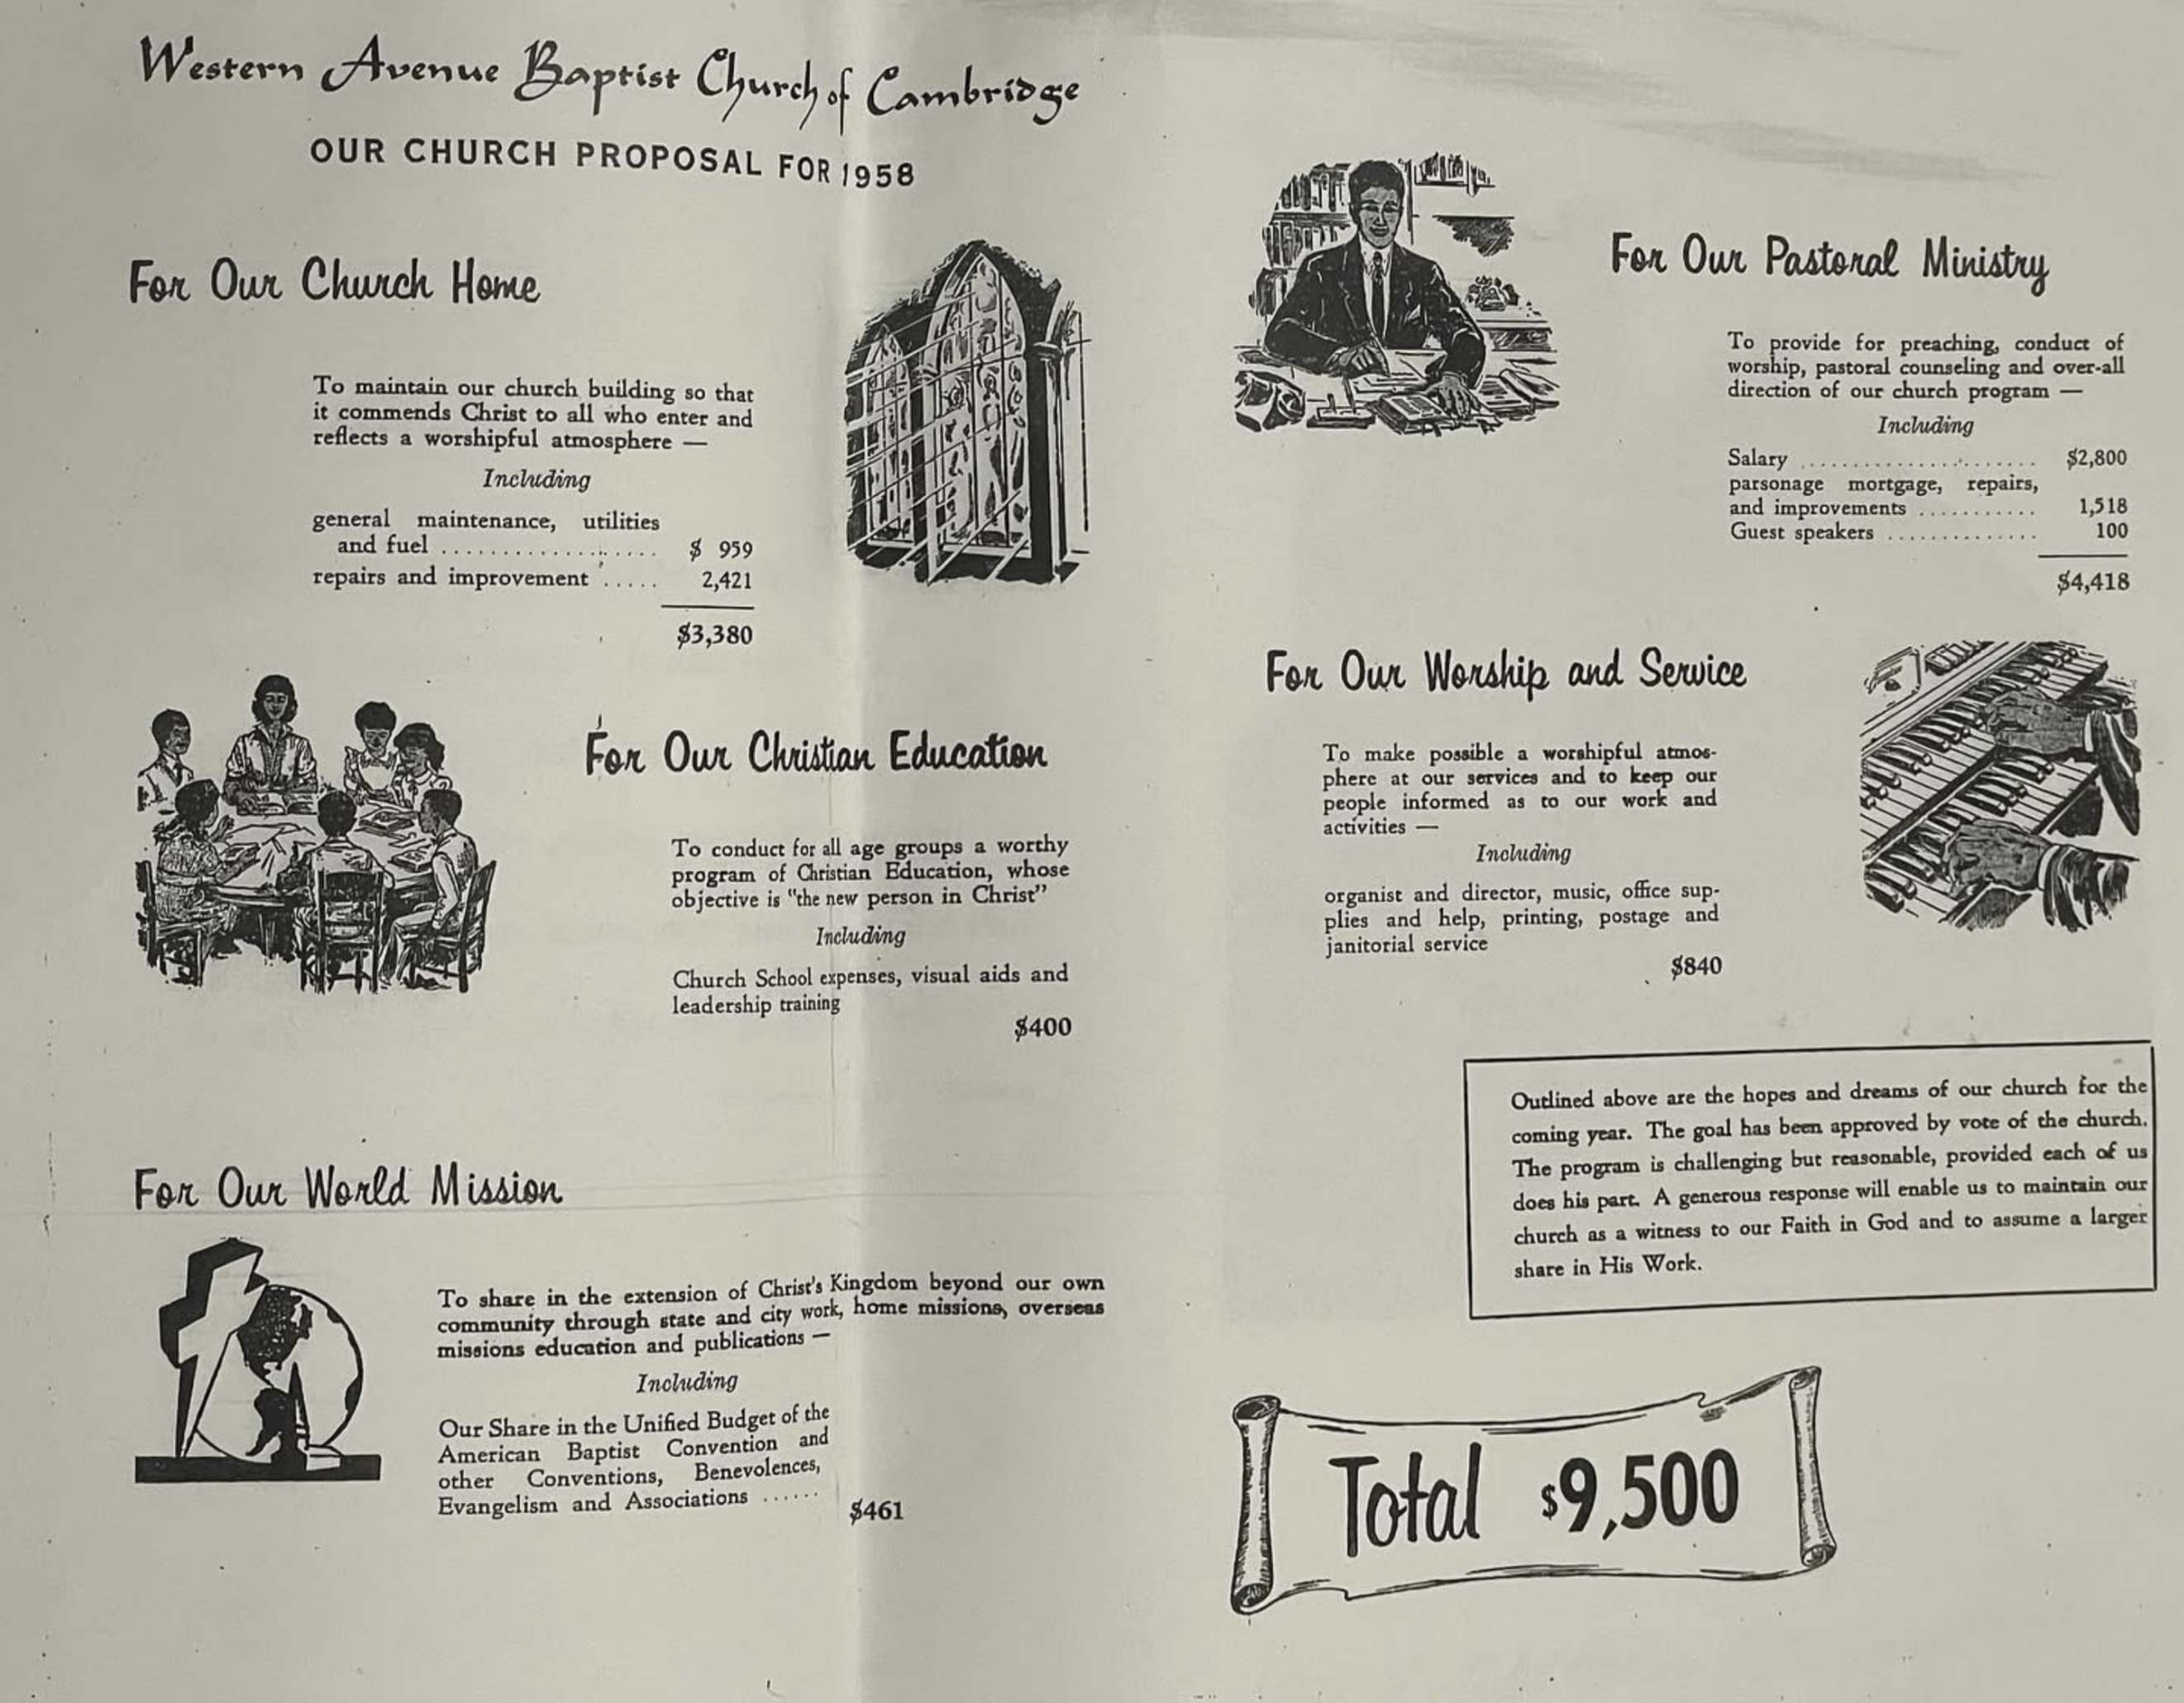 Western Avenue Baptist Church of Cambridge
OUR CHURCH PROPOSAL FOR 1958
For Our Church Home
To maintain our church building so that
it commends Christ to all who enter and
reflects a worshipful atmosphere —
Including
general maintenance, utilities
and fuel .................... $ 959
repairs and improvement ...... 2,421
$3,380
For Our Christian Education
To conduct for all age groups a worthy
program of Christian Education, whose
objective is "the new person in Christ"
Including
Church School expenses, visual aids and
leadership training
$400
For Our World Mission
To share in the extension of Christ's Kingdom beyond our own
community through state and city work, home missions, overseas
missions education and publications —
Including
Our Share in the Unified Budget of the
American Baptist Convention and
other Conventions, Benevolences,
Evangelism and Associations ...... $461
For Our Pastoral Ministry
To provide for preaching, conduct of
worship, pastoral counseling and over-all
direction of our church program —
Including
Salary ....................... $2,800
parsonage mortgage, repairs,
and improvements ........... 1,518
Guest speakers .............. 100
$4,418
For Our Worship and Service
To make possible a worshipful atmos-
phere at our services and to keep our
people informed as to our work and
activities —
Including
organist and director, music, office sup-
plies and help, printing, postage and
janitorial service
$840
Outlined above are the hopes and dreams of our church for the
coming year. The goal has been approved by vote of the church.
The program is challenging but reasonable, provided each of us
does his part. A generous response will enable us to maintain our
church as a witness to our Faith in God and to assume a larger
share in His Work.
Total $9,500